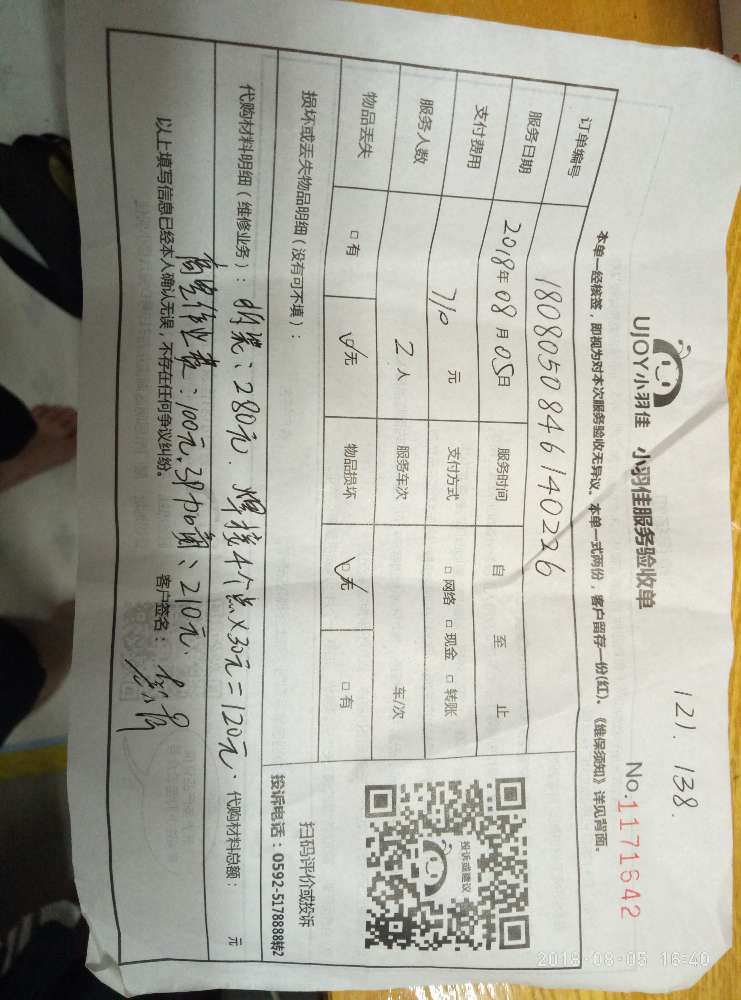 121. 138.
UJOY小羽佳 小羽佳服务验收单
No.1171642
本单一经核签，即视为对本次服务验收无异议。本单一式两份，客户留存一份(红)。《维保须知》详见背面。
订单编号 1808050846140226
服务日期 2018年08月05日 服务时间 自 至 止
支付费用 710 元 支付方式 □网络 □现金 □转账
服务人数 2人 服务车次 车/次
物品丢失 □有 ☑无 物品损坏 ☑无 □有
损坏或丢失物品明细（没有可不填）：
投诉或建议
扫码评价或投诉
投诉电话：0592-5178888转2
代购材料明细（维修业务）：拆装：280元. 焊接4个点X30元=120元. 代购材料总额： 元
高空作业费：100元. 210元.
以上填写信息已经本人确认无误，不存在任何争议纠纷。 客户签名：
2018-08-05 16:40